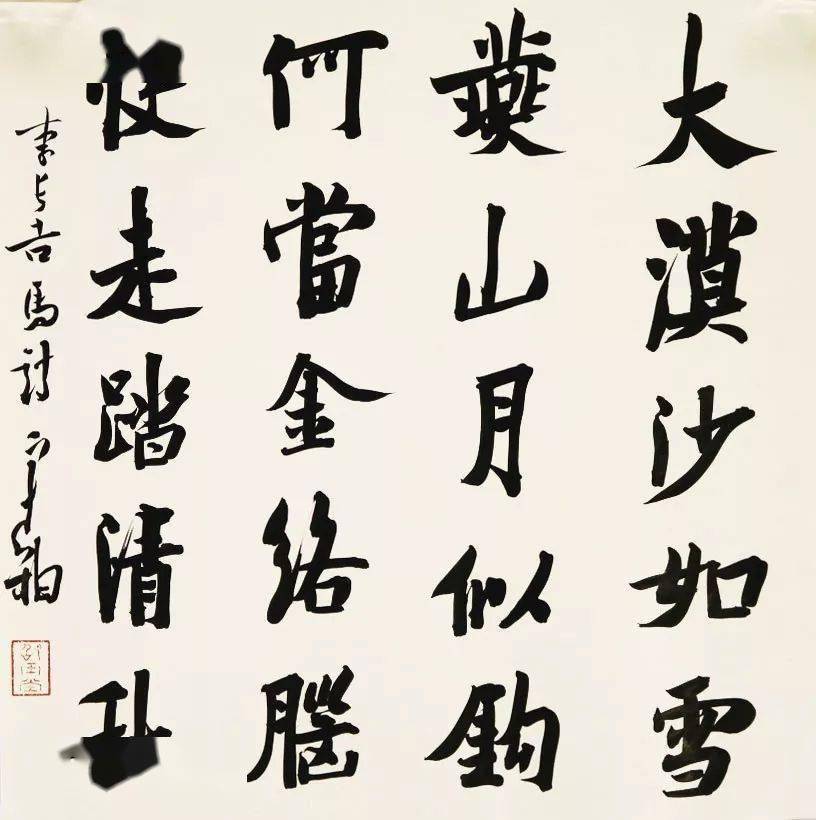 大漠沙如雪
燕山月似鉤
何當金絡腦
走踏清
李长吉馬詩